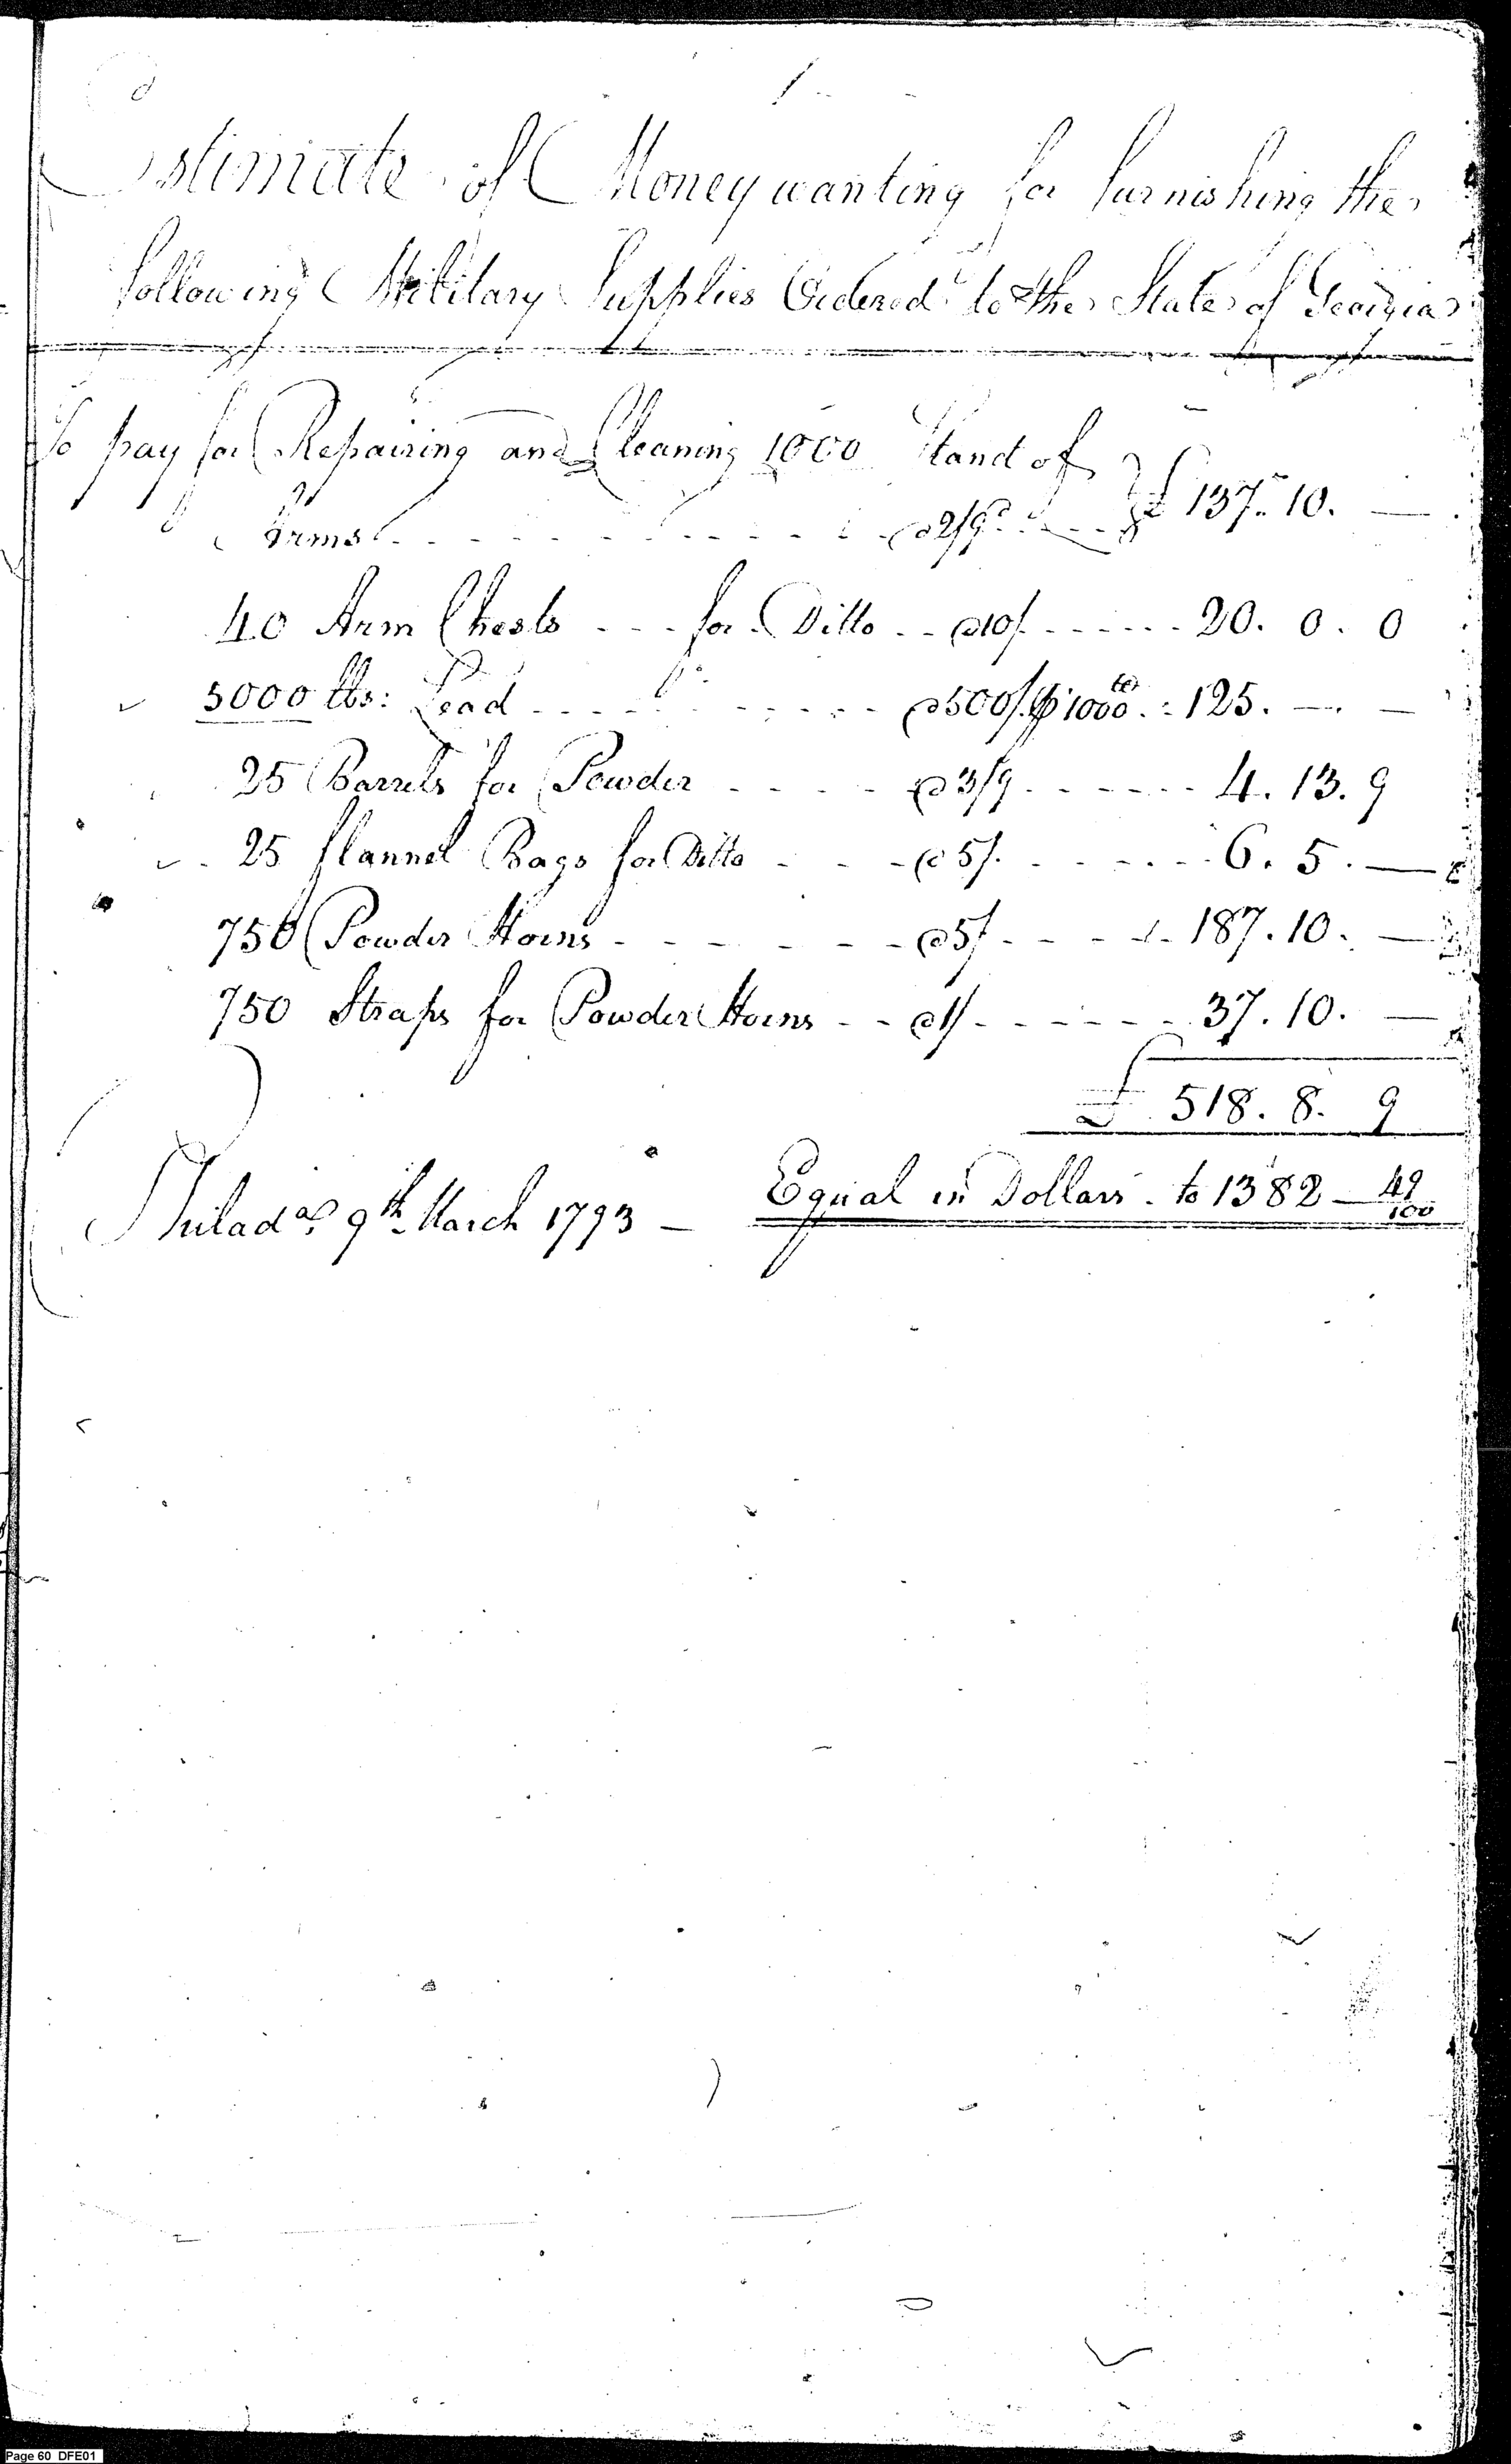 Estimate of Money wanting for furnishing the
following Military Supplies Ordered to the State of Georgia
To pay for Repairing and Cleaning 1000 Stand of
Arms @ 2/9d £ 137.. 10. —
40 Arm Chests - - - for Ditto - - @ 10/. - - - - - - 20. 0. 0
5000 lbs: Lead - - - - - - - - - - @ 500/. ⅌ 1000 lbs. : 125. — . —
25 Barrels for Powder - - - - @ 3/9 - - - - - - 4. 13. 9
25 flannel Bags for Ditto - - - @ 5/. - - - - - - 6. 5. —
750 Powder Horns - - - - - - - @ 5/ - - - - - 187. 10. —
750 Straps for Powder Horns - - @ 1/ - - - - - - 37. 10. —
£ 518. 8. 9
Equal in Dollars - to 1382 — 49/100
Philada. 9th March 1793 —
Page 60 DFE01